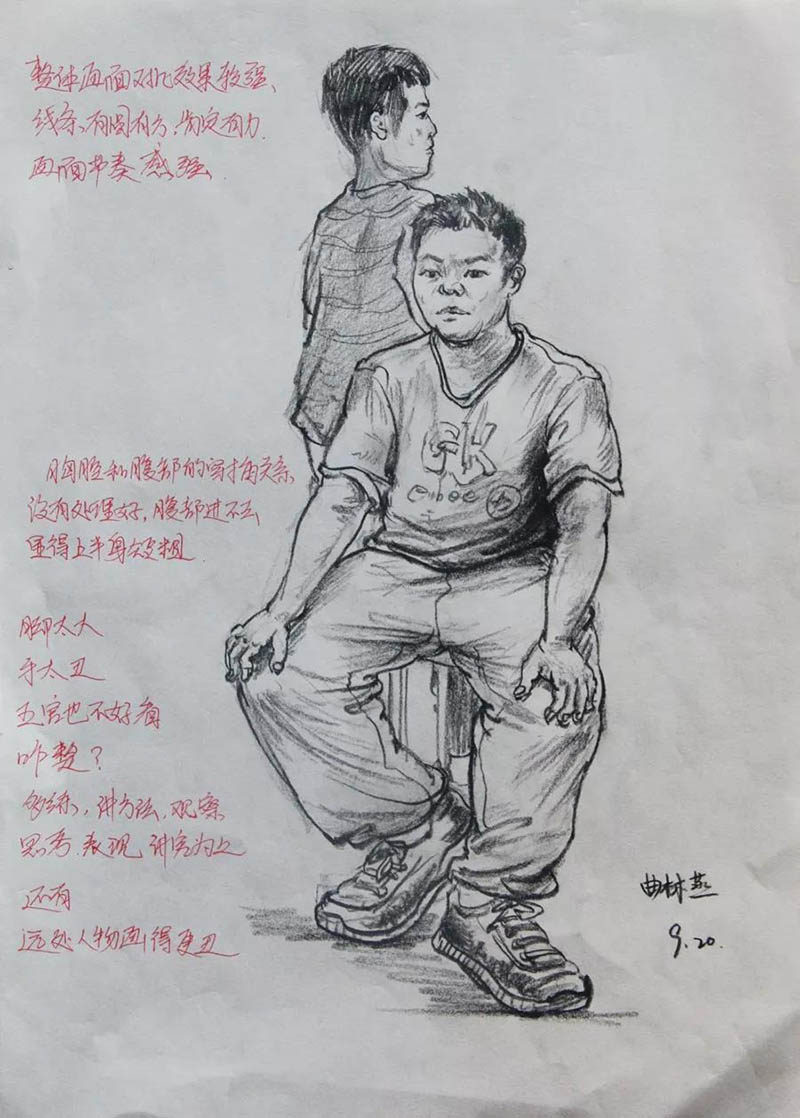 整体画面对比效果较强、
线条、有圆有方,肯定有力.
画面节奏感强
胸腔和腹部的穿插关系
没有处理好,腹部进不去
显得上半身欠粗
脚太大
手太丑
五官也不好看
咋整?
多练,讲方法,观察
思考、表现,讲究为上
还有
远处人物画得更丑
GK
曲林燕
9.20.